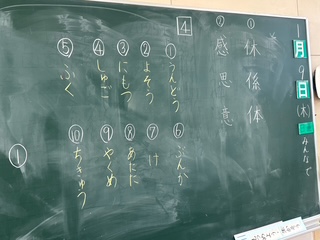 1月9日(木)
みんなで
① 休 係 体
② 感 思 意
4
①うんどう
②よそう
③にもつ
④しゅご
⑤ふく
⑥ぶんか
⑦け
⑧あたた
⑨やくめ
⑩ちきゅう
①